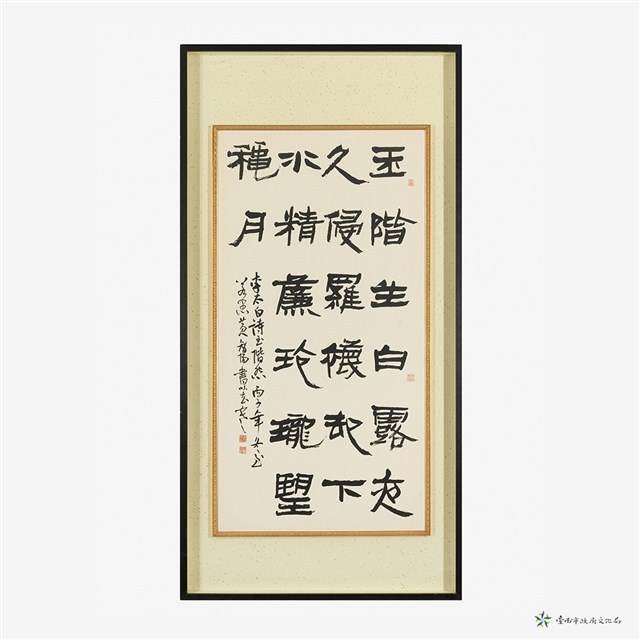 玉階生白露夜
久侵羅襪却下
水精簾玲瓏望
穐月
李太白詩玉階怨 丙子年
書
臺南市政府文化局